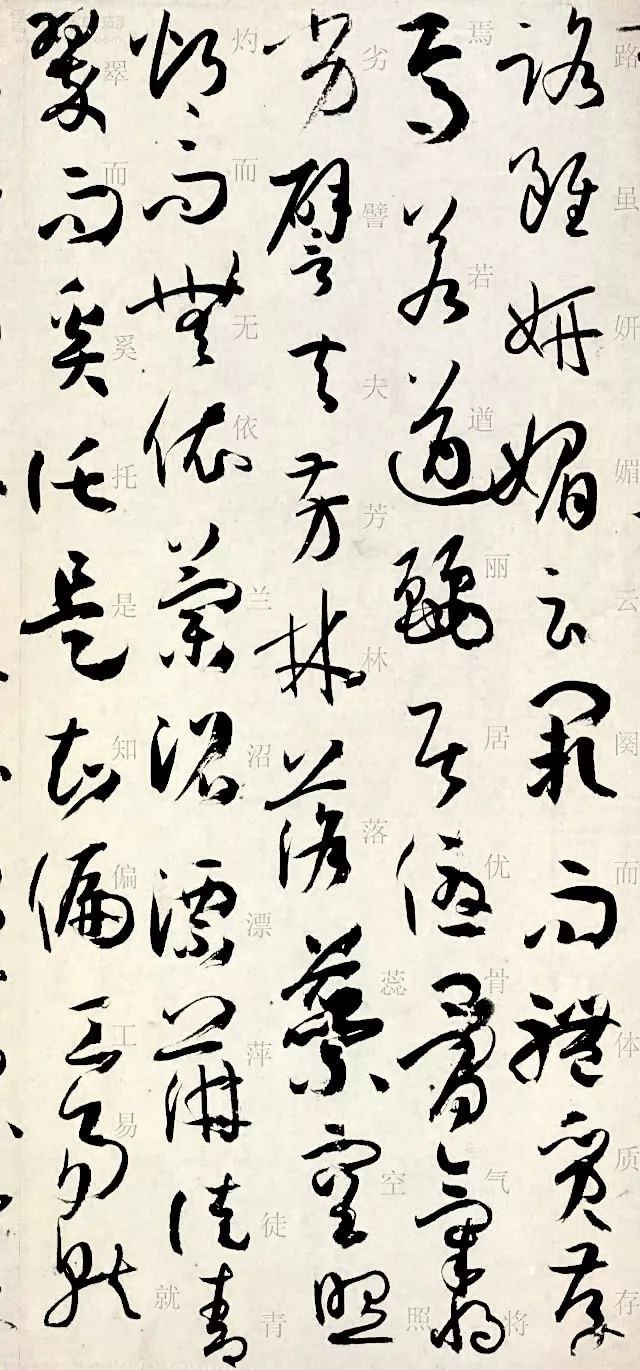 路虽妍媚云阕而体质存
焉若遒丽居优骨气将
劣譬夫芳林落蕊空照
灼而无依兰沼漂萍徒青
翠而奚托是知偏工易就